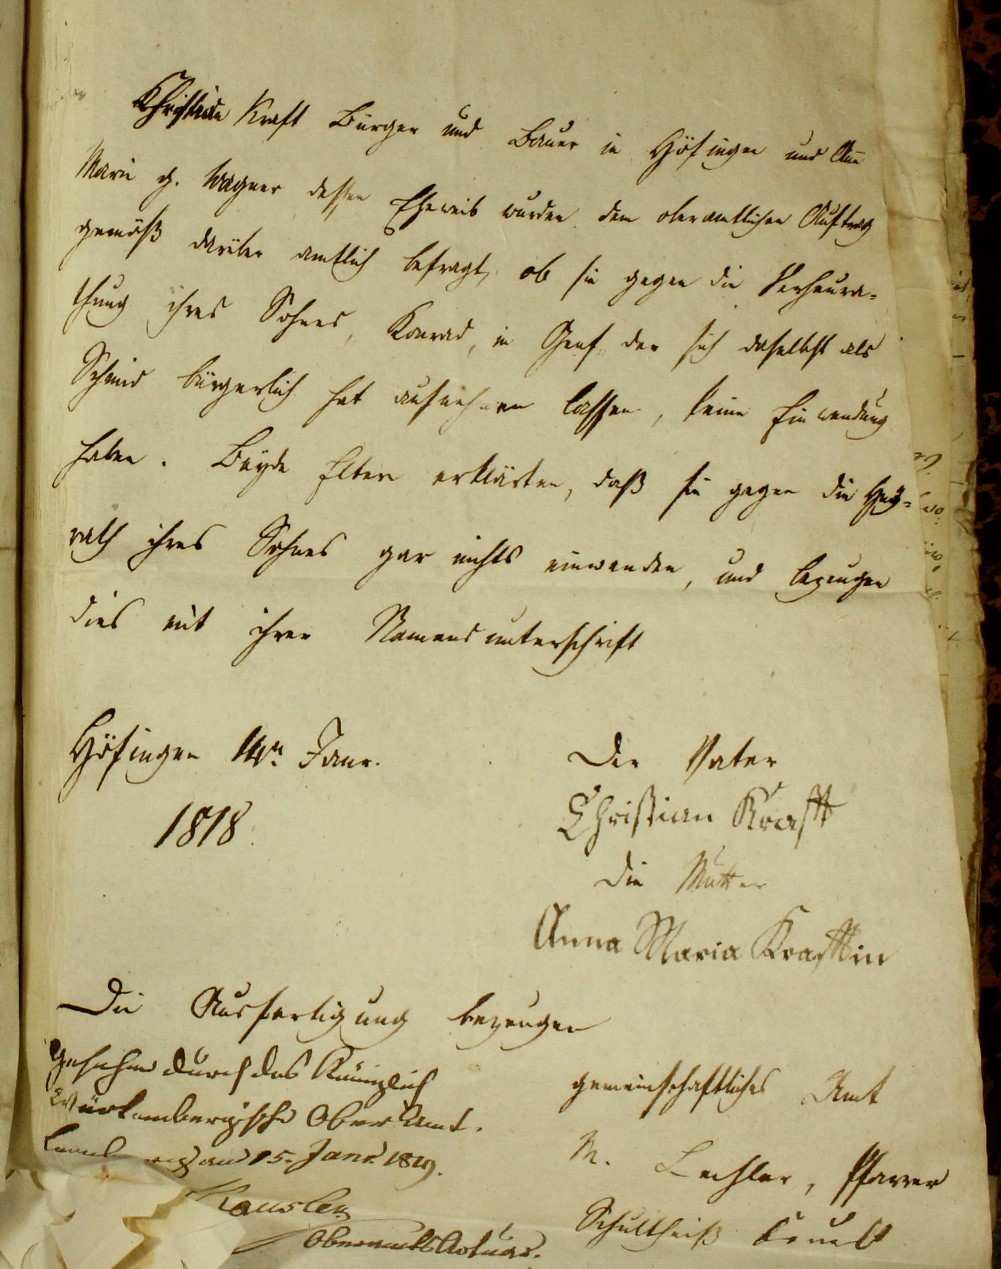 Christian Kraft Bürger und Bauer in Höfingen und Ana
Maria g. Wagner dessen Eheweib wurden dem oberamtlichen Auftrag
gemäß darüber amtlich befragt, ob sie gegen die Verheura-
thung ihres Sohnes, Konrad, in Genf der sich daselbst als
Schmid bürgerlich hat aufnehmen lassen, keine Einwendung
haben. Beyde Eltern erklärten, daß sie gegen die Hey-
rath ihres Sohnes gar nichts einwenden, und bezeugen
dies mit ihrer Namensunterschrift
Höfingen Janr.
1818.
Der Vater
Christian Krafft
Die Mutter
Anna Maria Krafftin
Die Ausfertigung bezeugen
gemeinschaftliches Amt
M. Lechler, Pfarrer
Schultheiß
Gesehen durch das Königlich
Würtembergische Ober Amt.
15. Janr. 1819.
Oberamts Actuar.